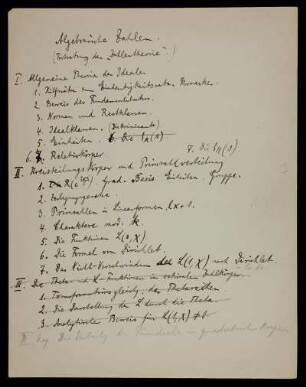 Algebraische Zahlen.
(Fortsetzung der "Zahlentheorie".)
I. Allgemeine Theorie der Ideale
1. Hilfssätze zum Eindeutigkeitssatz.
2. Beweis des Fundamentalsatzes.
3. Normen und Restklassen.
4. Idealklassen. (Diskriminante)
5. Einheiten. 6. Die
6. Relativkörper 7. Die
II. Kreisteilungskörper und Primzahlverteilung
1. Grad. Basis. Einheiten. Gruppe.
2. Zerlegungsgesetze.
3. Primzahlen in Linearformen, kx+1.
4. Charaktere mod. k.
5. Die Funktionen L(s, χ)
6. Die Formel von Dirichlet.
7. Das Nicht-Verschwinden der L(1, χ) und Dirichlet
III. Die Theta- und L-Funktionen im
1. Transformationsgleichg. der Thetareihen
2. Die Darstellung der L durch die Theta
3. Analytischer Beweis für L(1, χ) ≠ 0